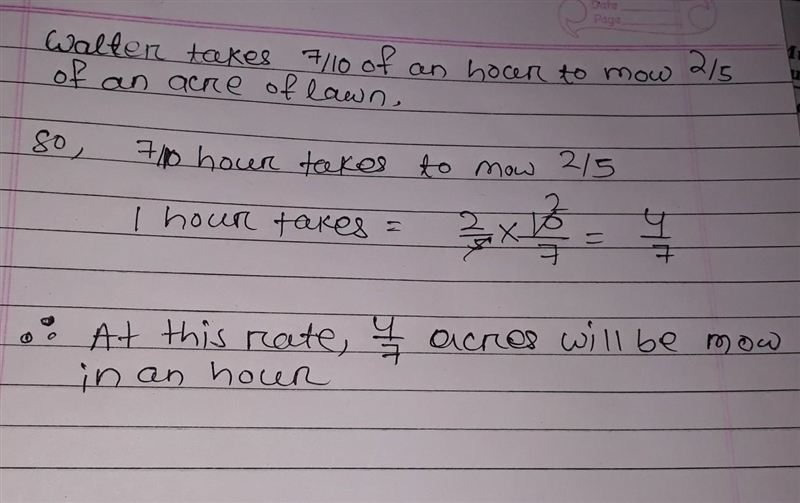 Date
Page
Walter takes 7/10 of an hour to mow 2/5
of an acre of lawn.
so, 7/10 hour takes to mow 2/5
1 hour takes = 2/5 × 10/7 2 = 4/7
∴ At this rate, 4/7 acres will be mow
in an hour